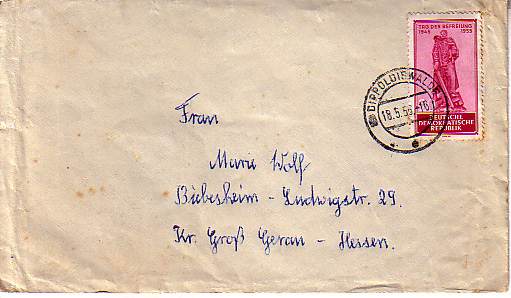 TAG DER BEFREIUNG
1945 1955
DEUTSCHE
DEMOKRATISCHE
REPUBLIK
DIPPOLDISWALDE
18.5.55-16
Frau
Marie Wolf
Biebesheim - Ludwigstr. 29.
Kr. Groß Gerau - Hessen.